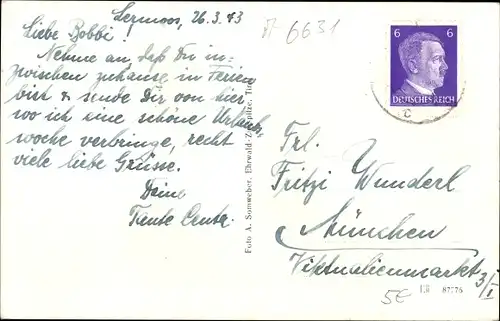 Lermoos, 26.3.43
Liebe Bobbi!
Nehme an, daß Du in-
zwischen zuhause in Ferien
bist & sende Dir von hier
wo ich eine schöne Urlaubs
woche verbringe, recht
viele liebe Grüsse.
Deine
Tante Centa.
Foto A. Somweber, Ehrwald-Zugspitze, Tirol
6631
6 6
DEUTSCHES REICH
Frl.
Fritzi Wunderl
München
Viktualienmarkt
3/I
5€
87776